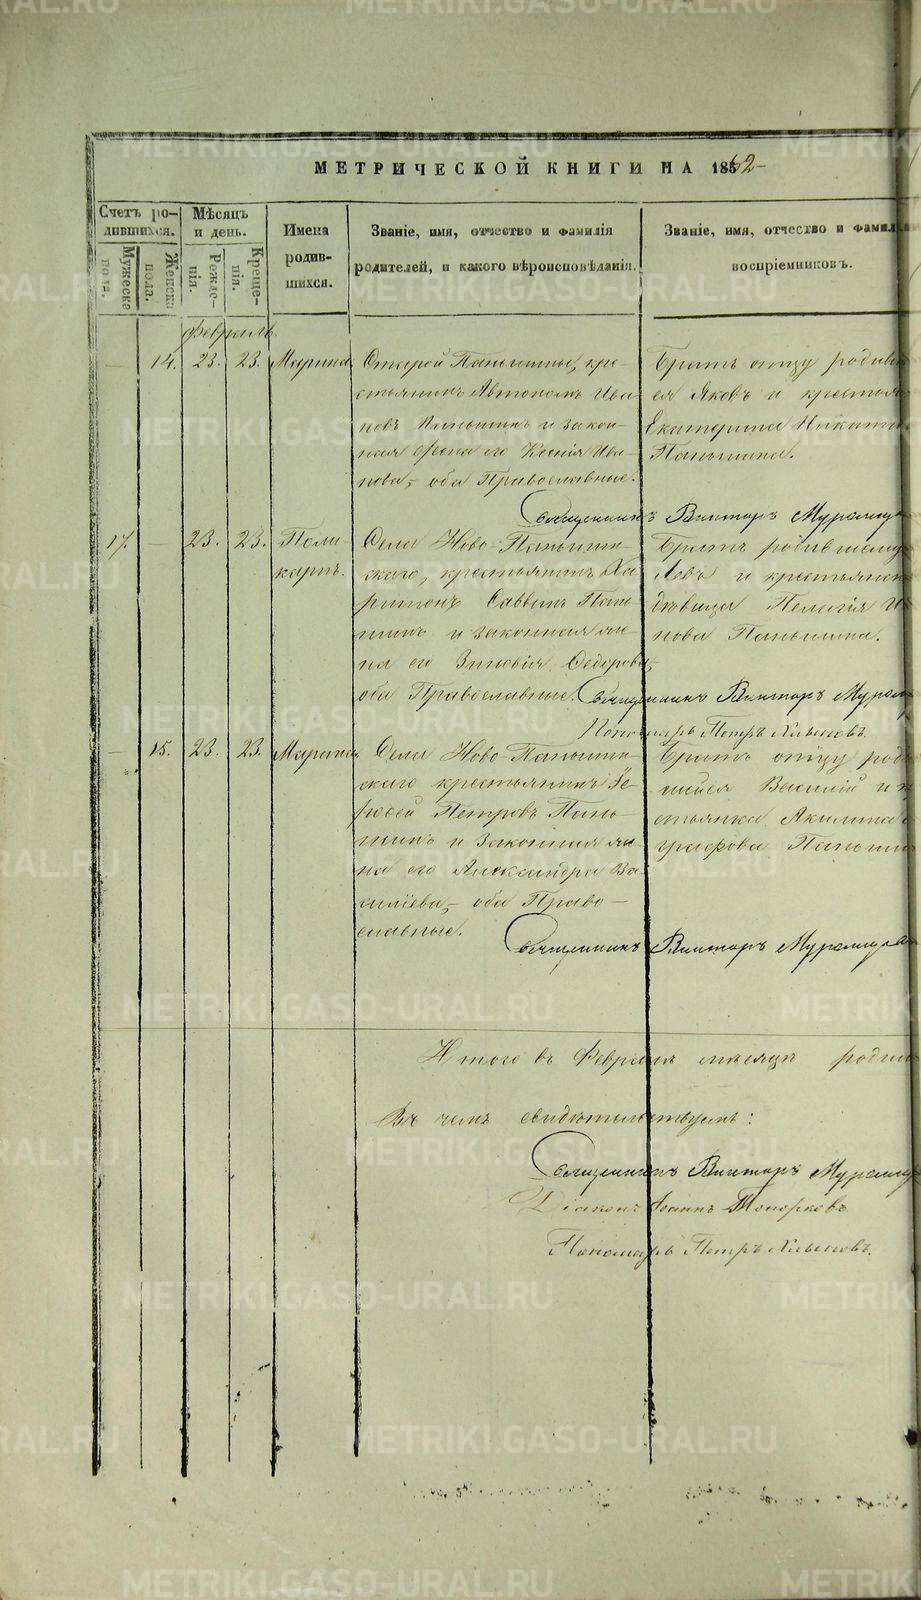 МЕТРИЧЕСКОЙ КНИГИ НА 1862
Счетъ родившихся.
Мужеска пола.
Женска пола.
Мѣсяцъ и день.
Рожденія.
Крещенія.
Имена родившихся.
Званіе, имя, отчество и фамилія
родителей, и какого вѣроисповѣданія.
Званіе, имя, отчество и фамил
воспріемниковъ.
Февраль.
14. 23. 23. Марина
Старой Паньшины, кре-
стьянинъ Автономъ Ива-
новъ Паньшинъ и закон-
ная жена его Ксенія Ива-
нова, оба Православные.
Братъ отцу родивш
ся Яковъ и крестьян
Екатерина Никити
Паньшина.
Священникъ Викторъ
17. 23. 23. Поли-
карпъ.
Села Ново-Паньшин-
скаго, крестьянинъ Ха-
ритонъ Саввинъ Пань-
шинъ и законная же-
на его Зиновія Ѳедорова,
оба Православные.
Братъ родившемуся
Левъ и крестьянск
дѣвица Пелагія И
нова Паньшина.
Священникъ Викторъ
Пономарь Петръ
15. 23. 23. Марина
Села Ново-Паньшин-
скаго крестьянинъ Ѳе-
Петровъ Пань-
шинъ и законная же-
на его Александра Ва-
силіева, оба Право-
славные.
Братъ отцу роди
шейся Василій и кр
стьянка Акилина
графова Паньшин
Священникъ Викторъ
Итого въ Февралѣ мѣсяцѣ родил
Въ чемъ свидѣтельствуемъ:
Священникъ Викторъ
Діаконъ Іоаннъ Топорковъ
Пономарь Петръ
METRIKI.GASO-URAL.RU